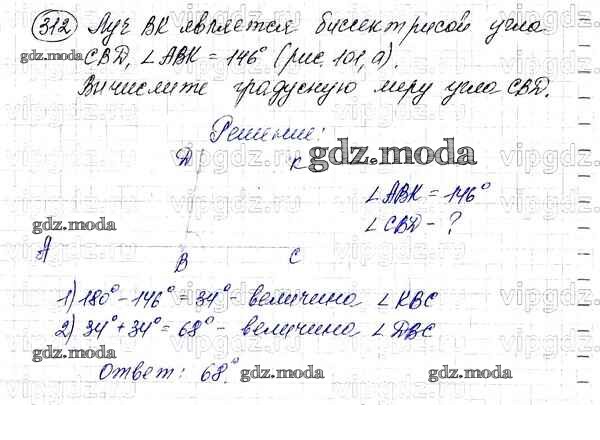 312 Луч BK является биссектрисой угла
CBD, ∠ABK = 146° (рис. 101, а).
gdz.moda
Вичислите градусную меру угла CBD.
Решение:
D K gdz.moda
∠ABK = 146°
gdz.moda ∠CBD - ?
A B C
1) 180° - 146° = 34° - величина ∠KBC
2) 34° + 34° = 68° - величина ∠DBC
gdz.moda gdz.moda
Ответ: 68°.
gdz.moda